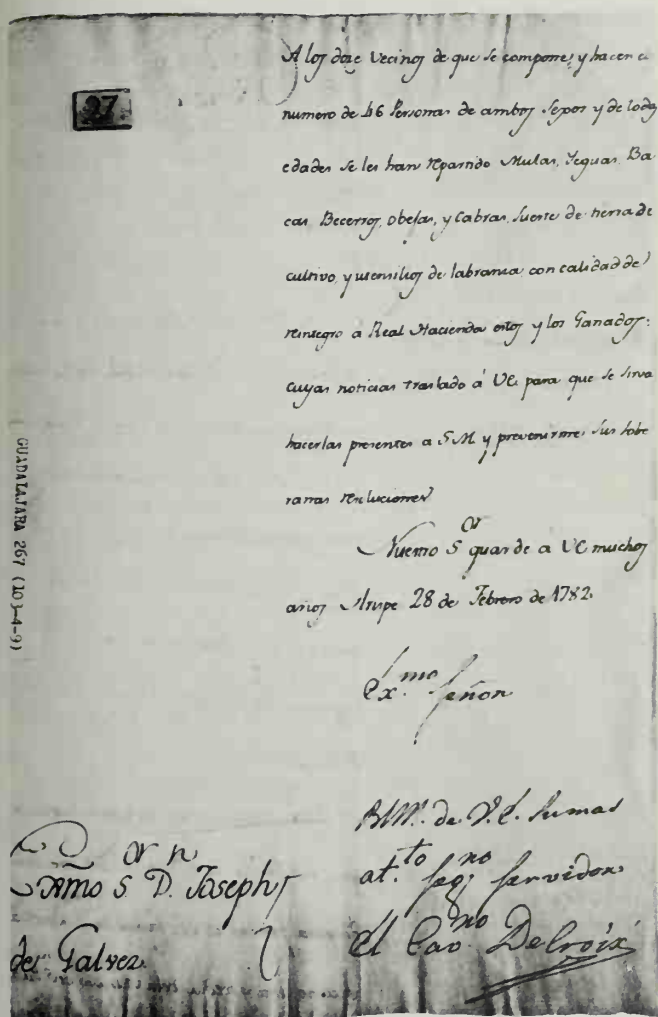 27
A los doze Vecinos de que se compone, y hacen el
numero de 46 Personas de ambos sexos y de todas
edades se les han repartido Mulas, Yeguas, Ba
cas, Becerros, obejas, y Cabras, suerte de tierra de
cultivo, y utensilios de labranza con calidad de
reintegro a Real Hacienda estos y los Ganados:
cuyas noticias traslado á VE. para que se sirva
hacerlas presentes a S.M. y prevenirme sus sobe
ranas resoluciones
Nuestro S.or guarde a VE muchos
años Arispe 28 de Febrero de 1782.
Ex.mo Señor
BLM. de V.E. su mas
at.to seg.no servidor
El Cav.no Decroix
Exmo S.or D.n Joseph
de Galvez
GUADALAJARA 267 (103-4-9)